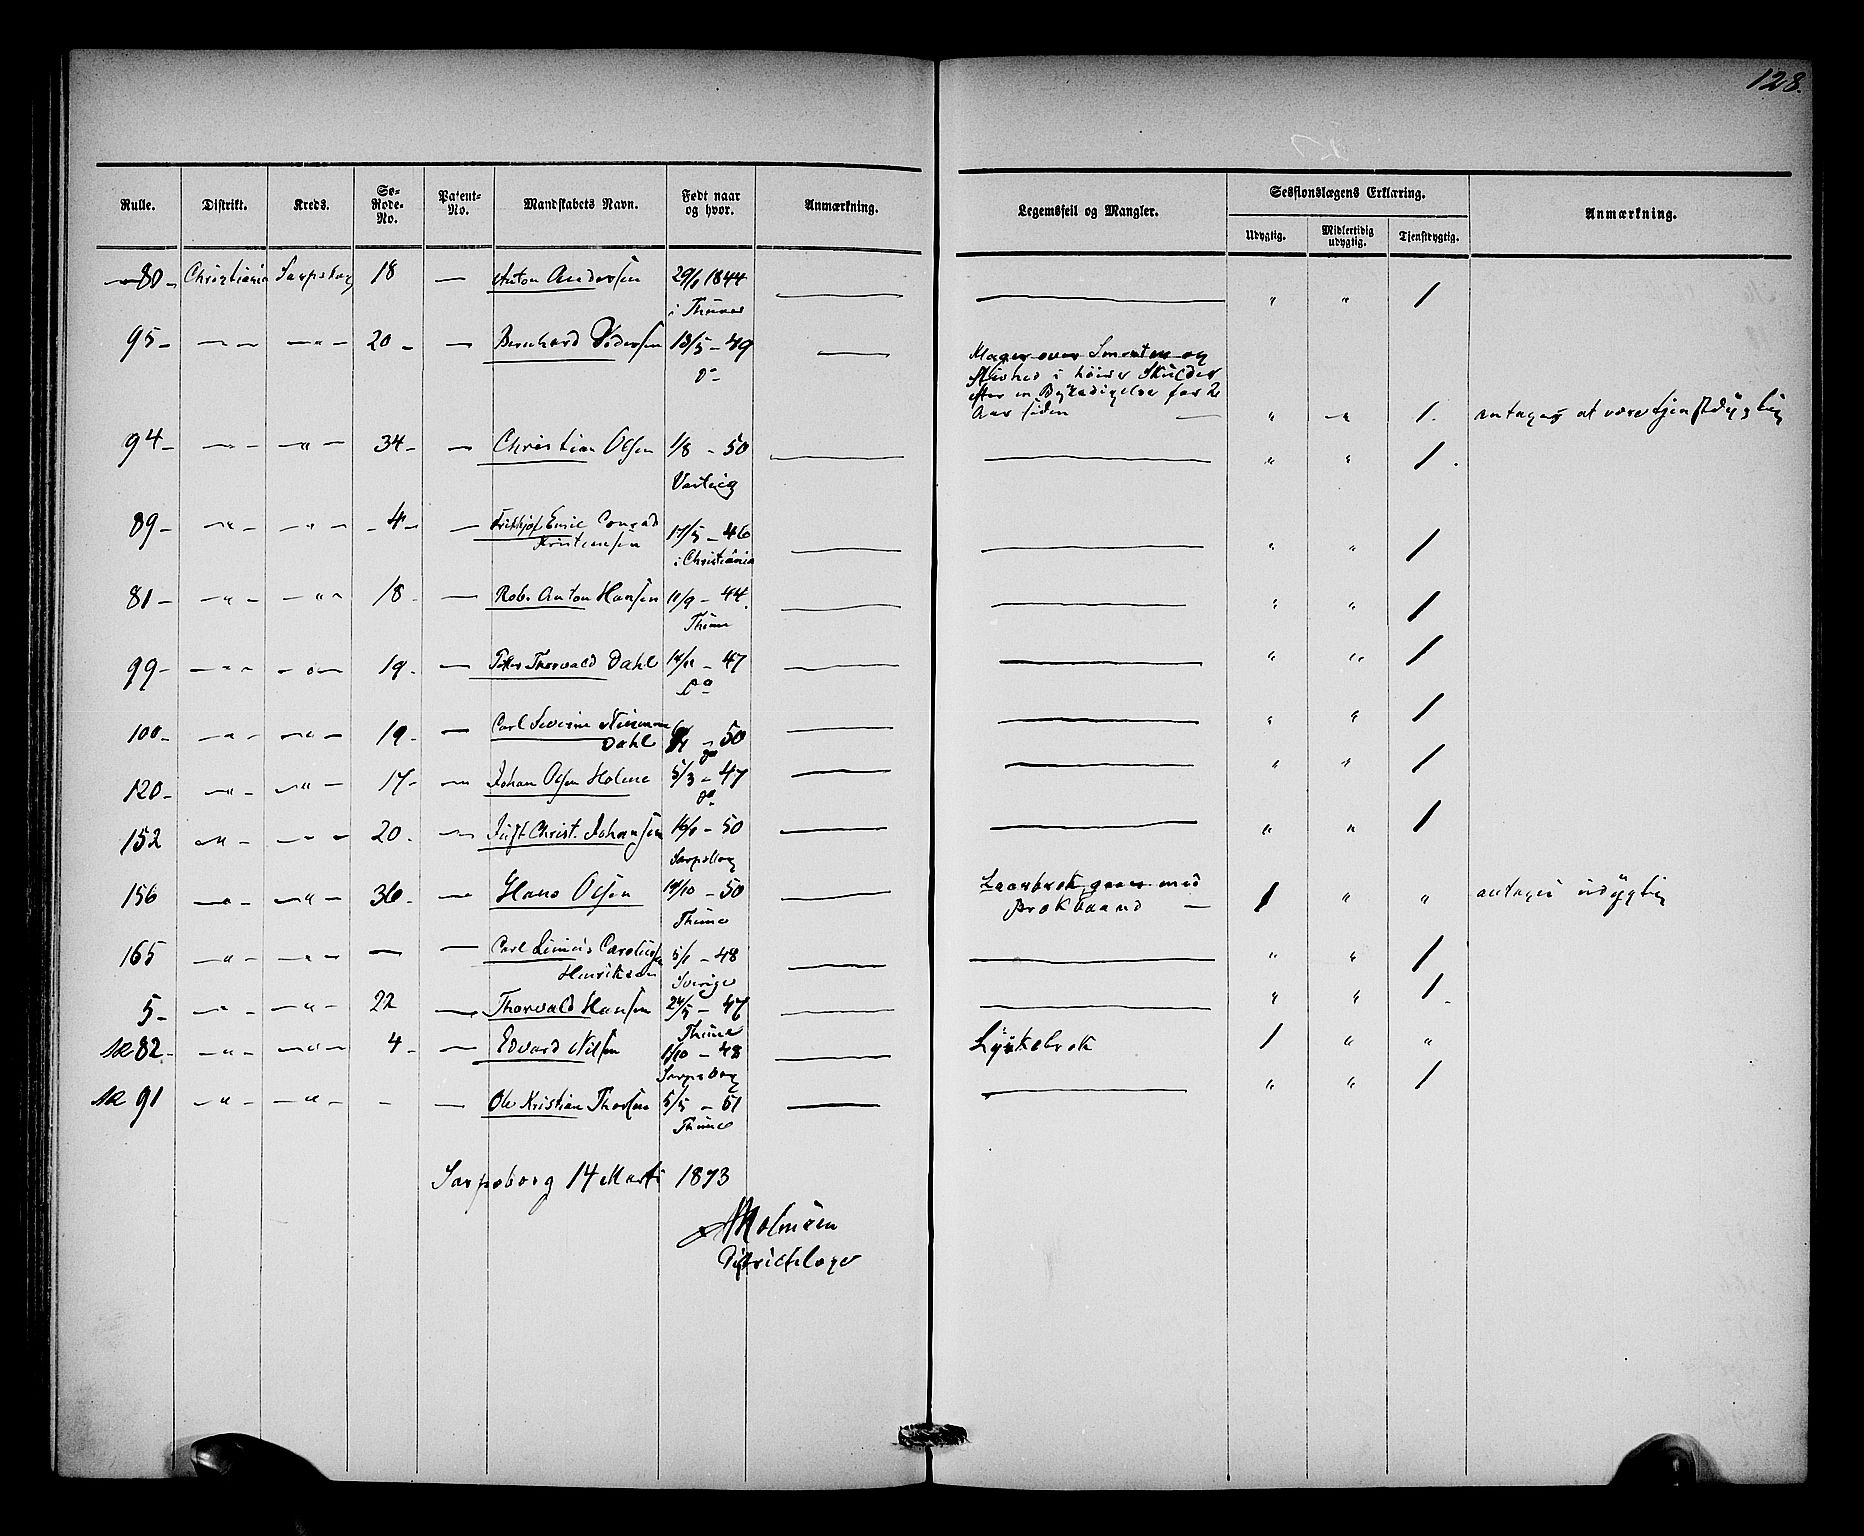 128.
Rulle. Distrikt. Kreds. Sø-Rode-No. Patent-No. Mandskabets Navn. Født naar og hvor. Anmærkning. Legemsfeil og Mangler. Sessionslægens Erklæring. Udygtig. Midlertidig udygtig. Tjenstdygtig. Anmærkning.
80 - Christiania Sarpsborg 18 — Anton Andersen 29/1 1844 — — " " /
i Thune
95 - — " — — " — 20 - — Bernhard Pedersen 13/5 - 49 — Klager over Smerter og
do Stivhed i høire Skulder
efter en Beskadigelse for 2
Aar siden — " " / antages at være tjenstdygtig
94 - — " — — " — 34 - — Christian Olsen 1/8 - 50 — — " " /
Varteig
89 - — " — — " — - 4 - — Frithjof Emil Conrad 17/5 - 46 — — " " /
Kristensen i Christiania
81 - — " — — " — 18 - — Rob. Anton Hansen 11/9 - 44. — — " " /
Thune
99 - — " — — " — 19 - — Thorvald Dahl 14/11 - 47 — — " " /
do
100 - — " — — " — 19 - — Carl Severin
Dahl - 50 — — " " /
do
120 - — " — — " — 17 - — Johan Olsen Holme 5/3 - 47 — — " " /
do
152 — " — — " — 20 - — Just Christ. Johansen 16/1 - 50 — — " " /
Sarpsborg
156 — " — — " — 36 - — Hans Olsen 14/10 - 50 — Laarbrok gaar med
Thune Brokbaand — / " " antages udygtig
165 — " — — " — — — Carl 5/1 - 48 — — " " /
Henriksen Sverige
5 - — " — — " — 22 — Thorvald Hansen 24/5 - 47 — — " " /
Thune
82 - — " — — " — 4 - — Edvard Nilsen 1/10 - 48 — Lyskebrok / " "
Sarpsborg
91 — " — — " — - — Ole Kristian Thorsen 5/5 - 51 — — " " /
Thune
Sarpsborg 14 Marts 1873
Holmsen
Districtslæge